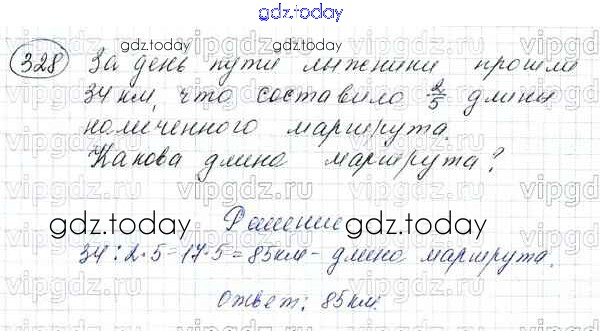 gdz.today
gdz.today gdz.today
328 За день пути лыжники прошли
34 км, что составило 2/5 длины
намеченного маршрута.
Какова длина маршрута?
vipgdz.ru vipgdz.ru vipgdz.ru
gdz.today Решение gdz.today
34:2·5=17·5=85км – длина маршрута.
vipgdz.ru vipgdz.ru vipgdz.ru
Ответ: 85км.